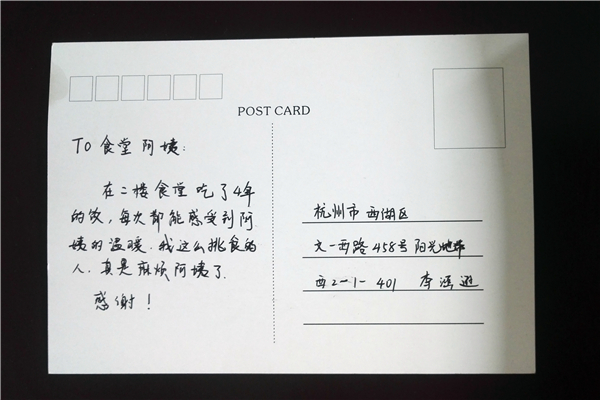 POST CARD
TO 食堂阿姨:
在二楼食堂吃了4年
的饭,每次都能感受到阿
姨的温暖.我这么挑食的
人.真是麻烦阿姨了.
感谢!
杭州市 西湖区
文一西路 458号 阳光地带
西2-1-401 李